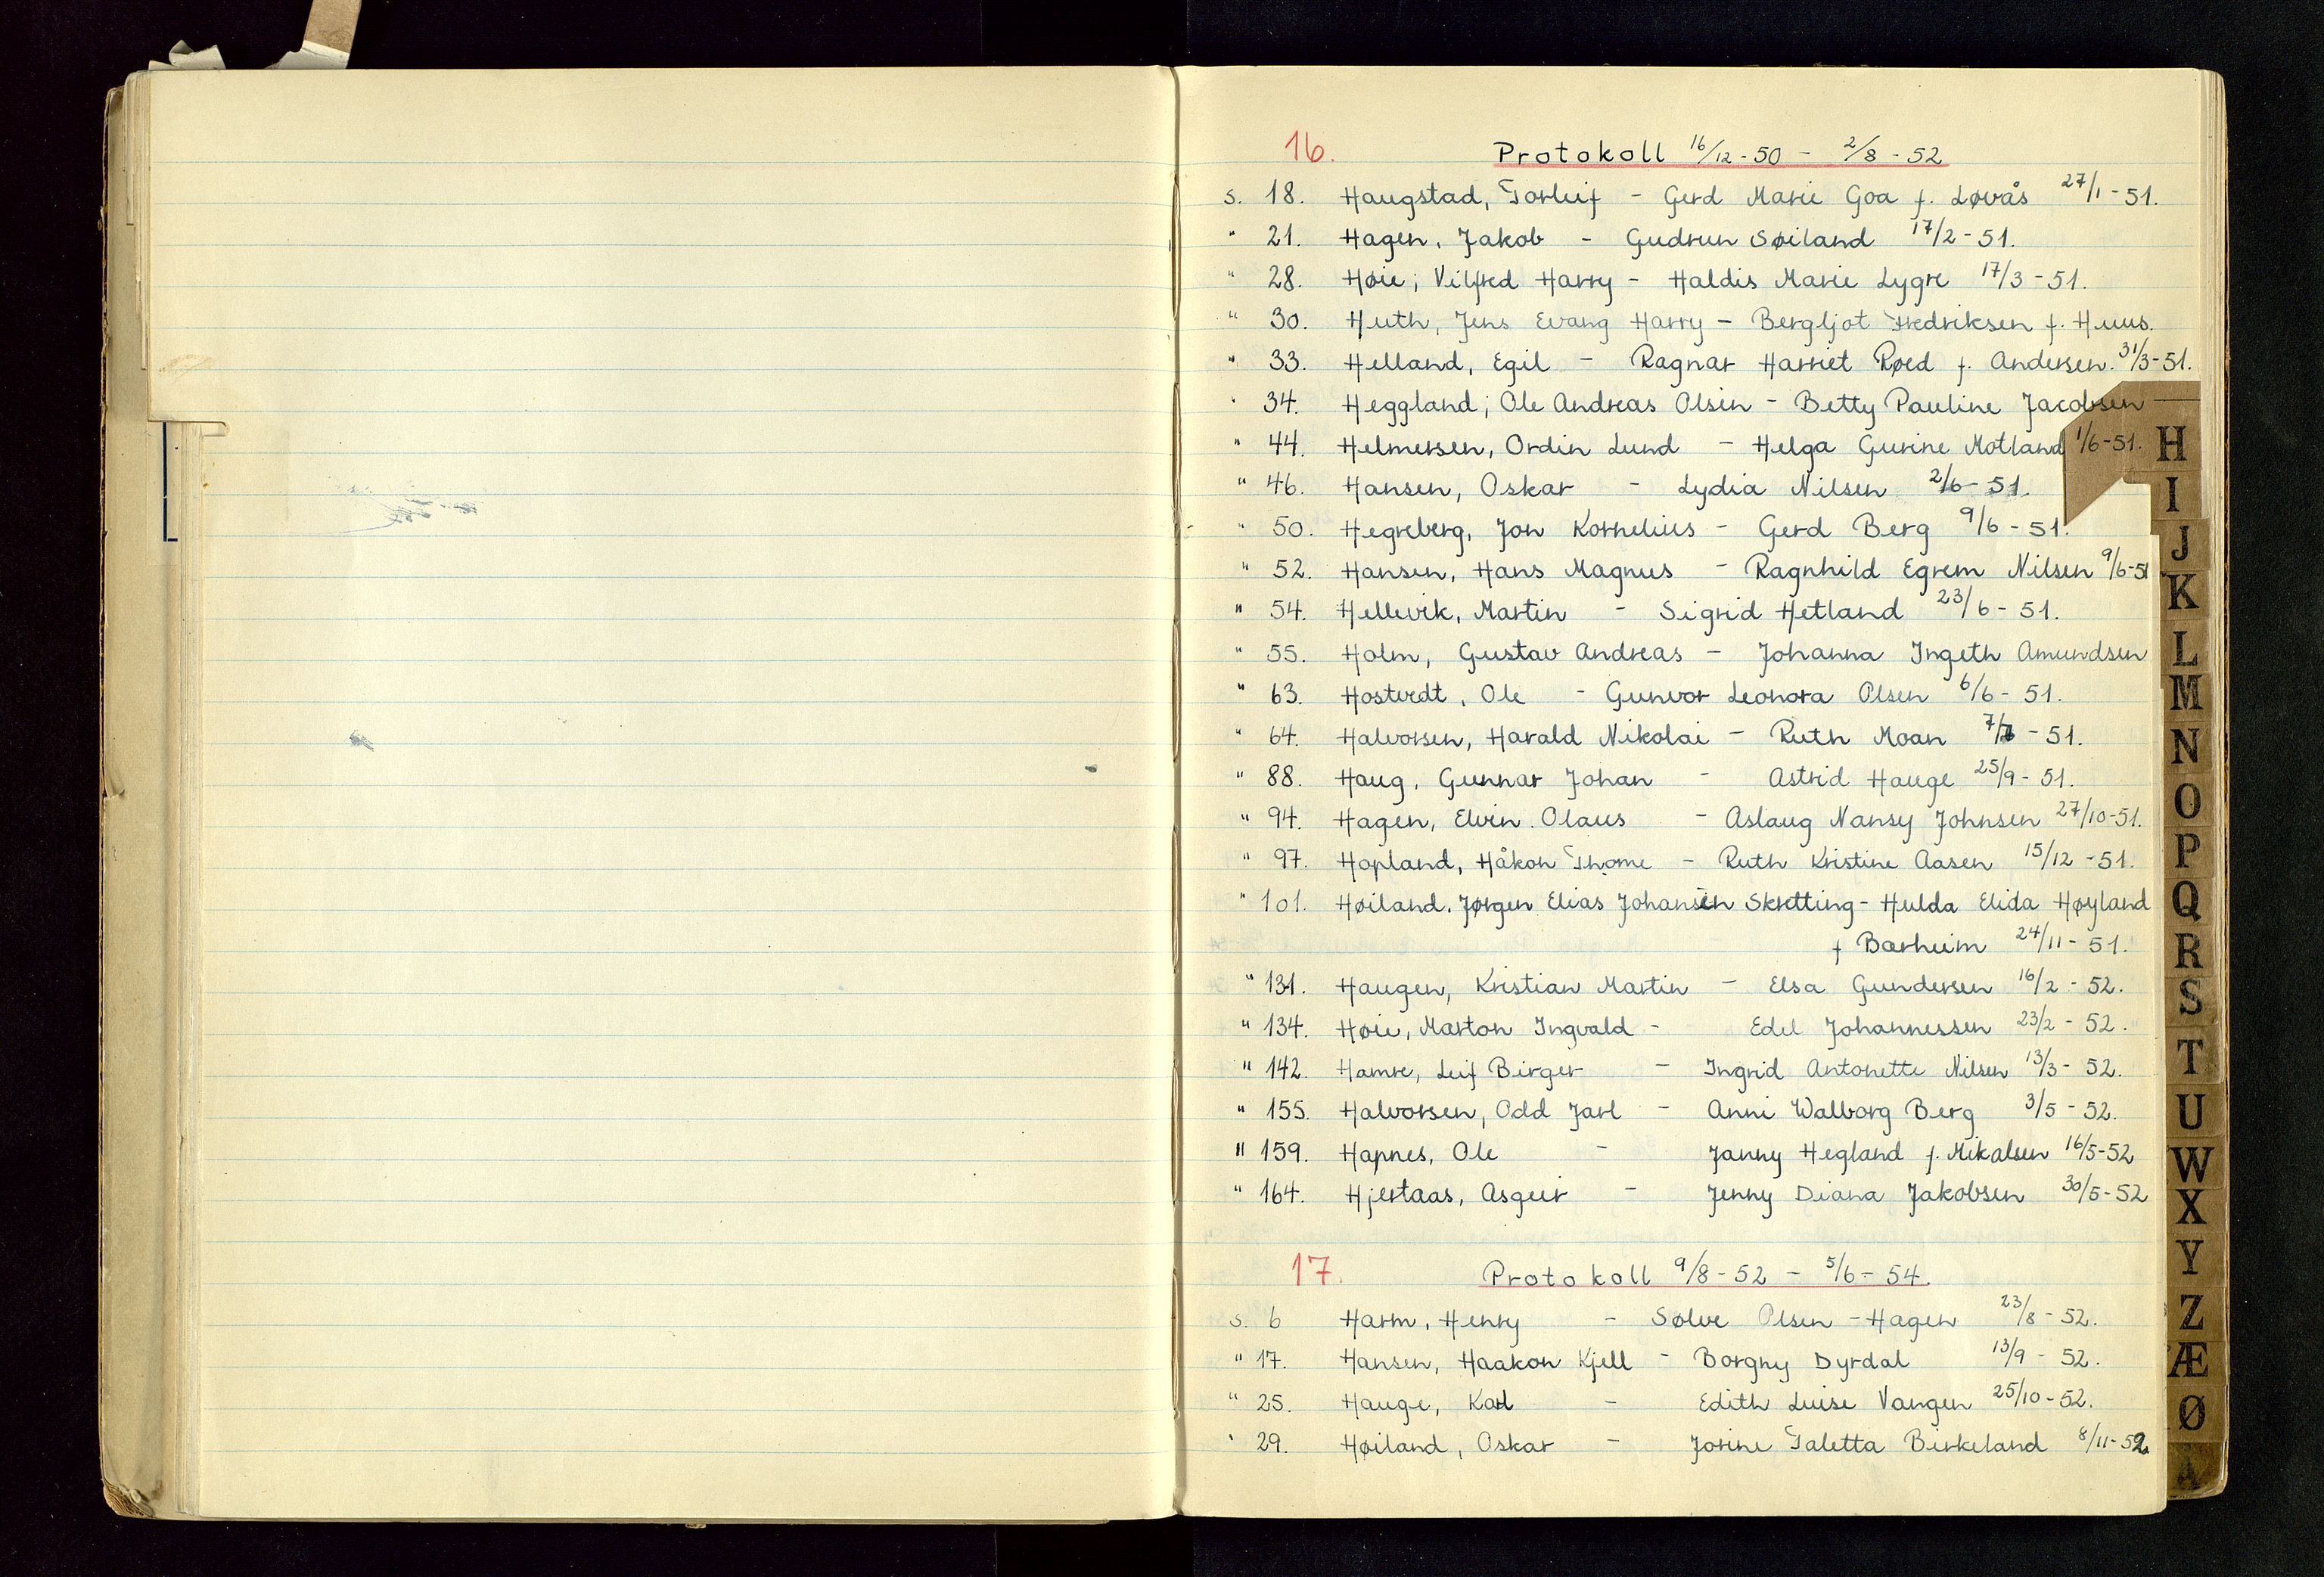 16. Protokoll 16/12-50 - 2/8-52
s. 18. Haugstad, Torleif - Gerd Marie Goa f. Løvås 27/1-51.
" 21. Hagen, Jakob - Gudrun Søiland 17/2-51.
" 28. Høie, Vilfred Harry - Haldis Marie Lygre 17/3-51.
" 30. Huth, Jens Evang Harry - Bergljot Fredriksen f. Huus.
" 33. Helland, Egil - Ragnar Harriet Røed f. Andersen. 31/3-51.
" 34. Heggland, Ole Andreas Olsen - Betty Pauline Jacobsen
" 44. Helmersen, Ordin Lund - Helga Gurine Motland 1/6-51.
" 46. Hansen, Oskar - Lydia Nilsen 2/6-51.
" 50. Hegreberg, Jon Kornelius - Gerd Berg 9/6-51.
" 52. Hansen, Hans Magnus - Ragnhild Egrem Nilsen 9/6-51
" 54. Hellevik, Martin - Sigrid Hetland 23/6-51.
" 55. Holm, Gustav Andreas - Johanna Ingeth Amundsen
" 63. Hostvedt, Ole - Gunvor Leonora Olsen 6/6-51.
" 64. Halvorsen, Harald Nikolai - Ruth Moan 7/7-51.
" 88. Haug, Gunnar Johan - Astrid Hauge 25/9-51.
" 94. Hagen, Elvin Olaus - Aslaug Nansy Johnsen 27/10-51.
" 97. Hopland, Håkon Thome - Ruth Kristine Aasen 15/12-51.
" 101. Høiland, Jørgen Elias Johansen Skretting - Hulda Elida Høyland
f Barheim 24/11-51.
" 131. Haugen, Kristian Martin - Elsa Gundersen 16/2-52.
" 134. Høie, Marton Ingvald - Edel Johannessen 23/2-52.
" 142. Hamre, Leif Birger - Ingrid Antonette Nilsen 13/3-52.
" 155. Halvorsen, Odd Jarl - Anni Walborg Berg 3/5-52.
" 159. Hapnes, Ole - Janny Hegland f. Mikalsen 16/5-52
" 164. Hjertaas, Asgeir - Jenny Diana Jakobsen 30/5-52
17. Protokoll 9/8-52 - 5/6-54.
s. 6 Harm, Henry - Sølve Olsen-Hagen 23/8-52.
" 17. Hansen, Haakon Kjell - Borgny Dyrdal 13/9-52.
" 25. Hauge, Karl - Edith Luise Vangen 25/10-52.
" 29. Høiland, Oskar - Jorine Taletta Birkeland 8/11-52
H
I
J
K
L
M
N
O
P
Q
R
S
T
U
W
X
Y
Z
Æ
Ø
Å